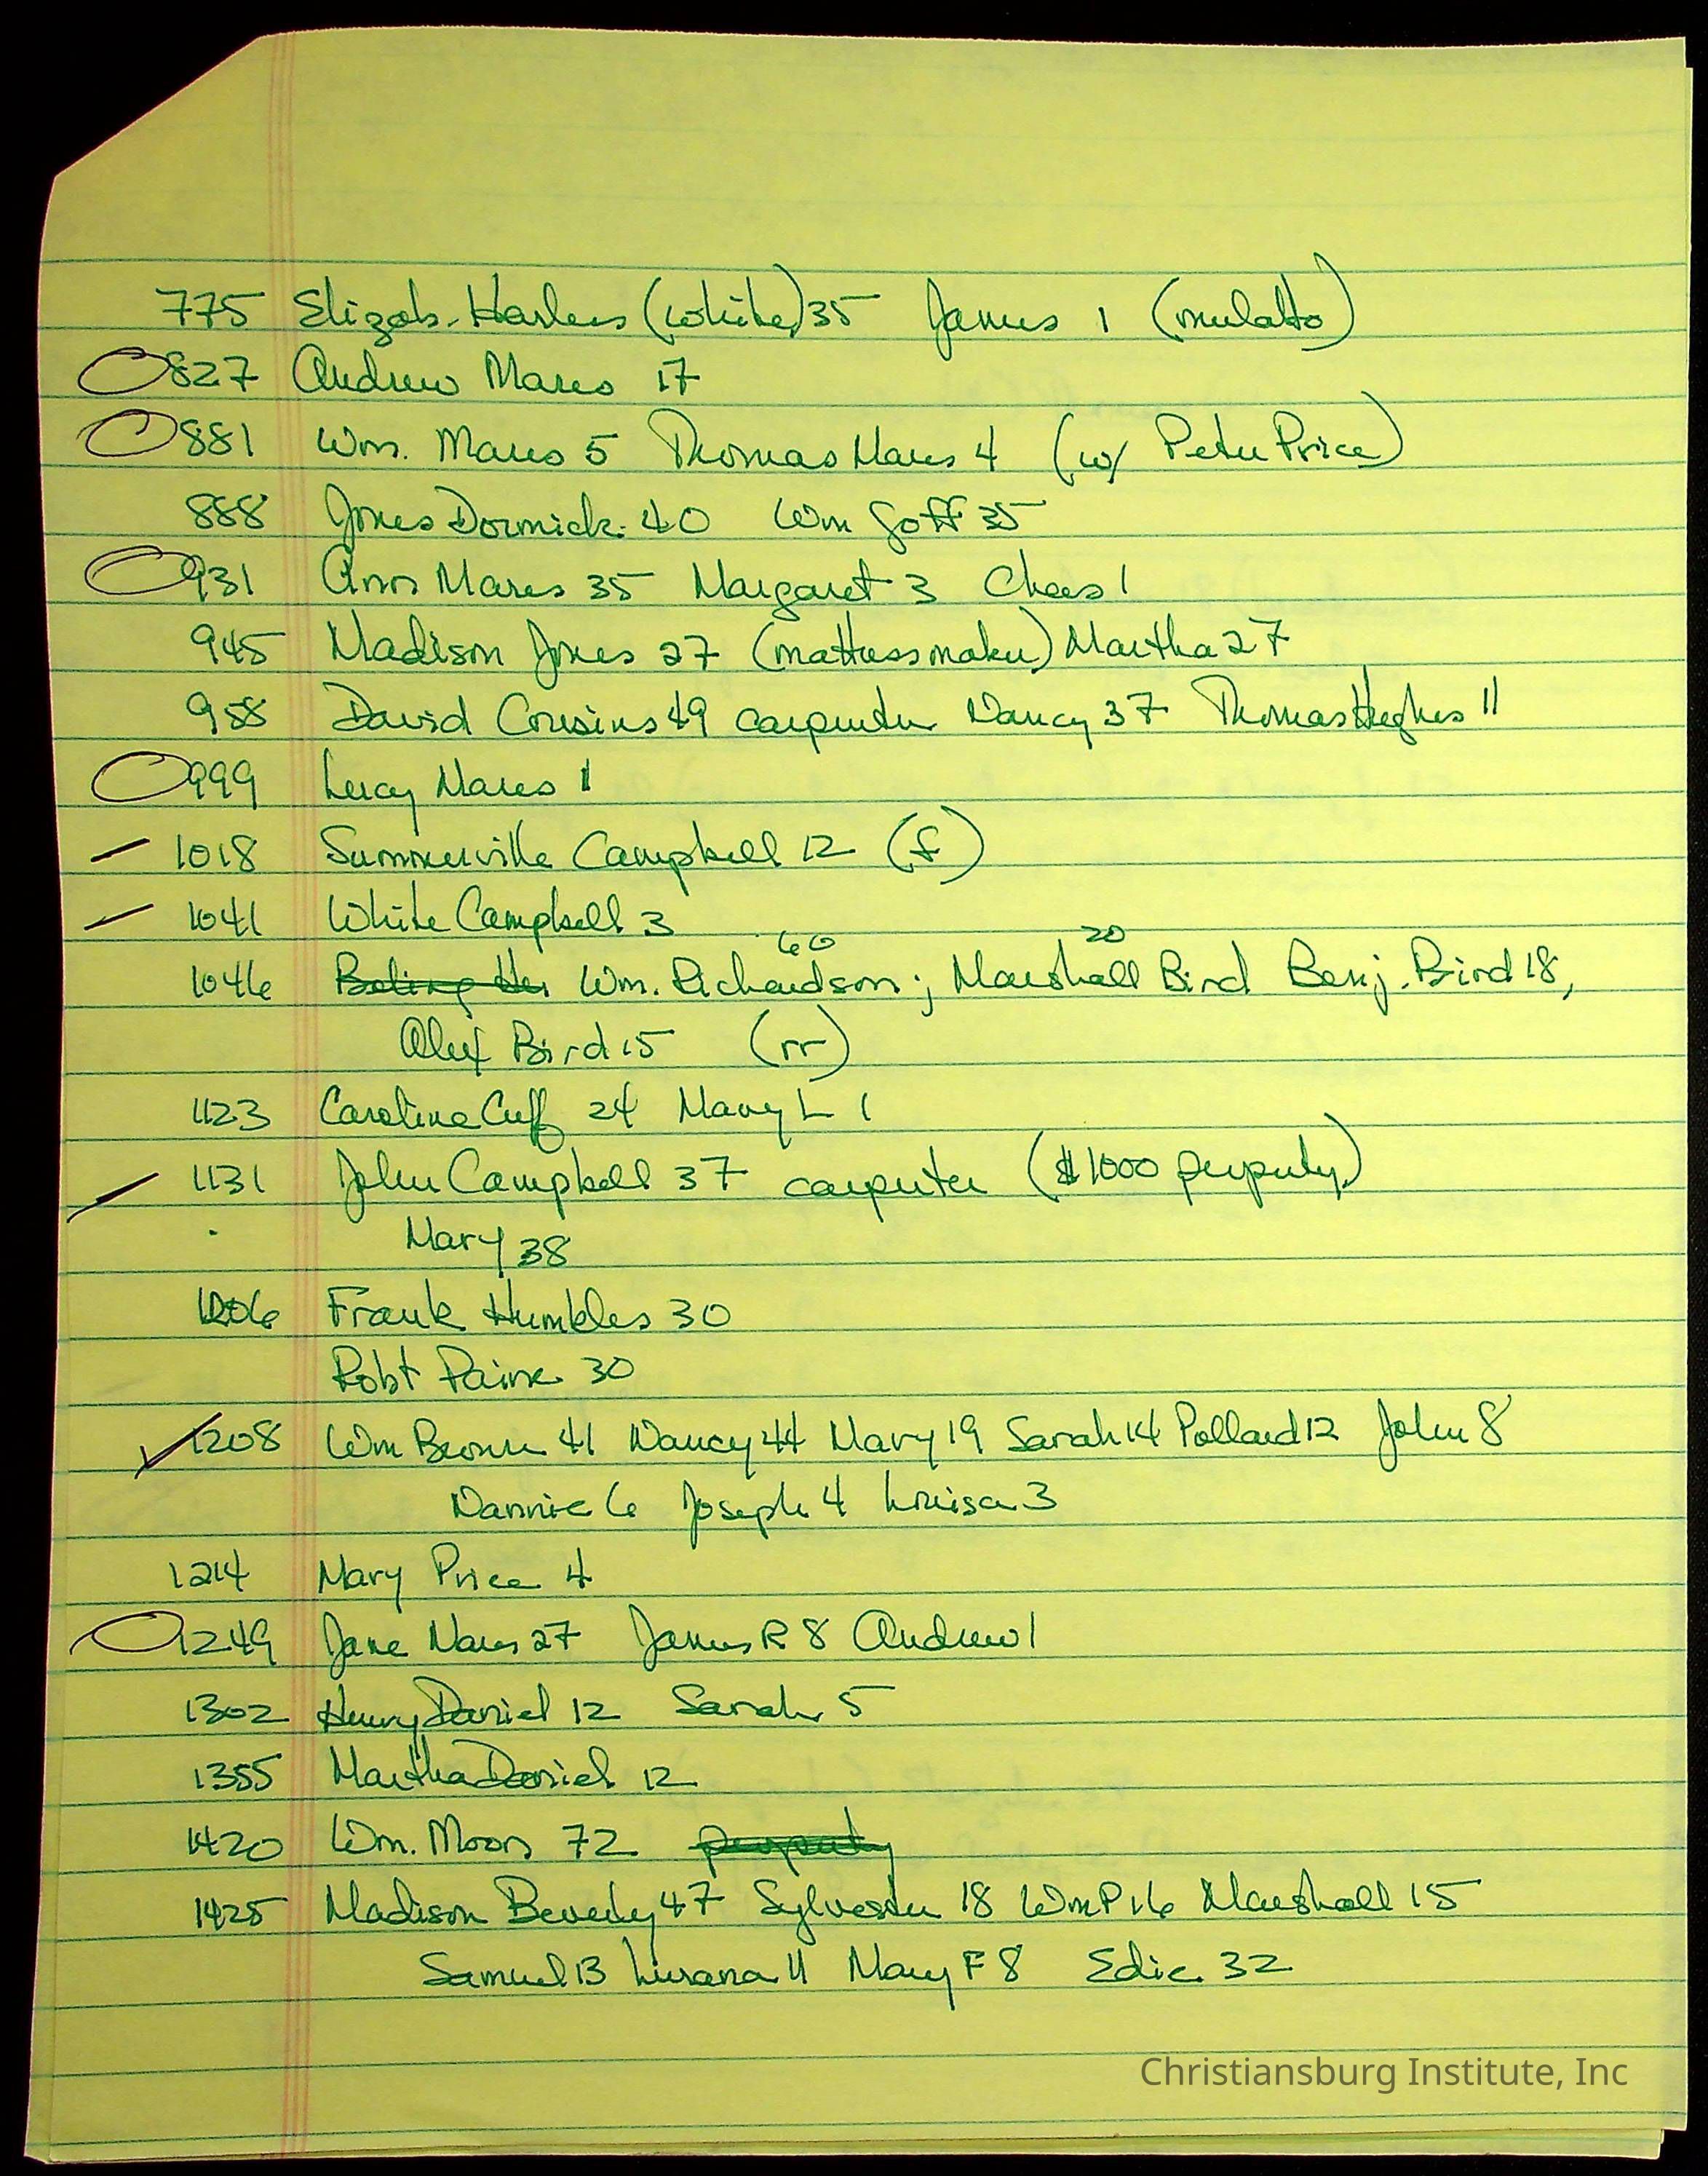 775 Elizab. Harless (white) 35 James 1 (mulatto)
827 Andrew Mares 17
881 Wm. Mares 5 Thomas Mares 4 (w/ Peter Price)
888 Jones Dormick 40 Wm Goff 35
931 Ann Mares 35 Margaret 3 Chas 1
945 Madison Jones 27 (mattress maker) Martha 27
958 David Cousins 49 carpenter Nancy 37 Thomas Hughes 11
999 Lucy Mares 1
1018 Summerville Campbell 12 (f)
1041 White Campbell 3
60 20
1046 Wm. Richardson; Marshall Bird Benj. Bird 18,
Alex Bird 15 (rr)
1123 Caroline Cuff 24 Mary L 1
1131 John Campbell 37 carpenter ($1000 property)
Mary 38
1206 Frank Humbles 30
Robt Paine 30
1208 Wm Brown 41 Nancy 44 Mary 19 Sarah 14 Pollard 12 John 8
Nannie 6 Joseph 4 Louisa 3
1214 Mary Price 4
1249 Jane Mares 27 James R 8 Andrew 1
1302 Henry Daniel 12 Sarah 5
1355 Martha Daniel 12
1420 Wm. Moon 72 property
1425 Madison Beverly 47 Sylvester 18 Wm P 16 Marshall 15
Samuel 13 Lurana 11 Mary F 8 Edie 32
Christiansburg Institute, Inc